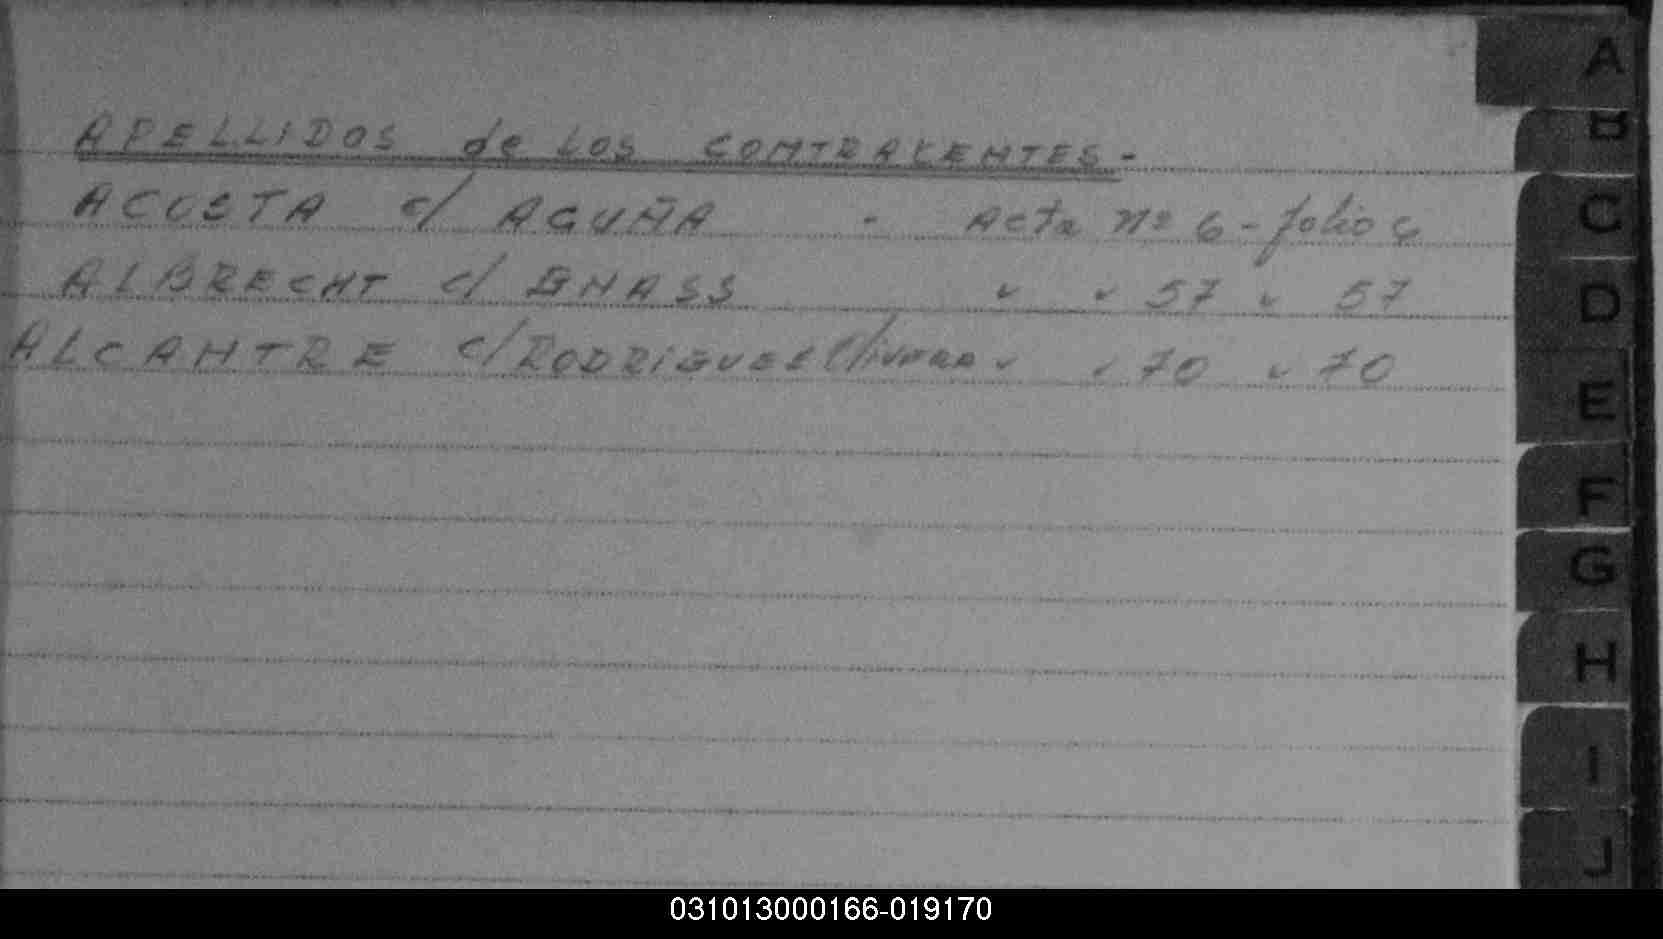 APELLIDOS de LOS CONTRAYENTES-
ACOSTA c/ AGUÑA - Acta Nº 6 - folio 6
ALBRECHT c/ GNASS " " 57 " 57
ALCANTRE c/ RODRIGUES Olivera " " 70 " 70
A
B
C
D
E
F
G
H
I
J
031013000166-019170